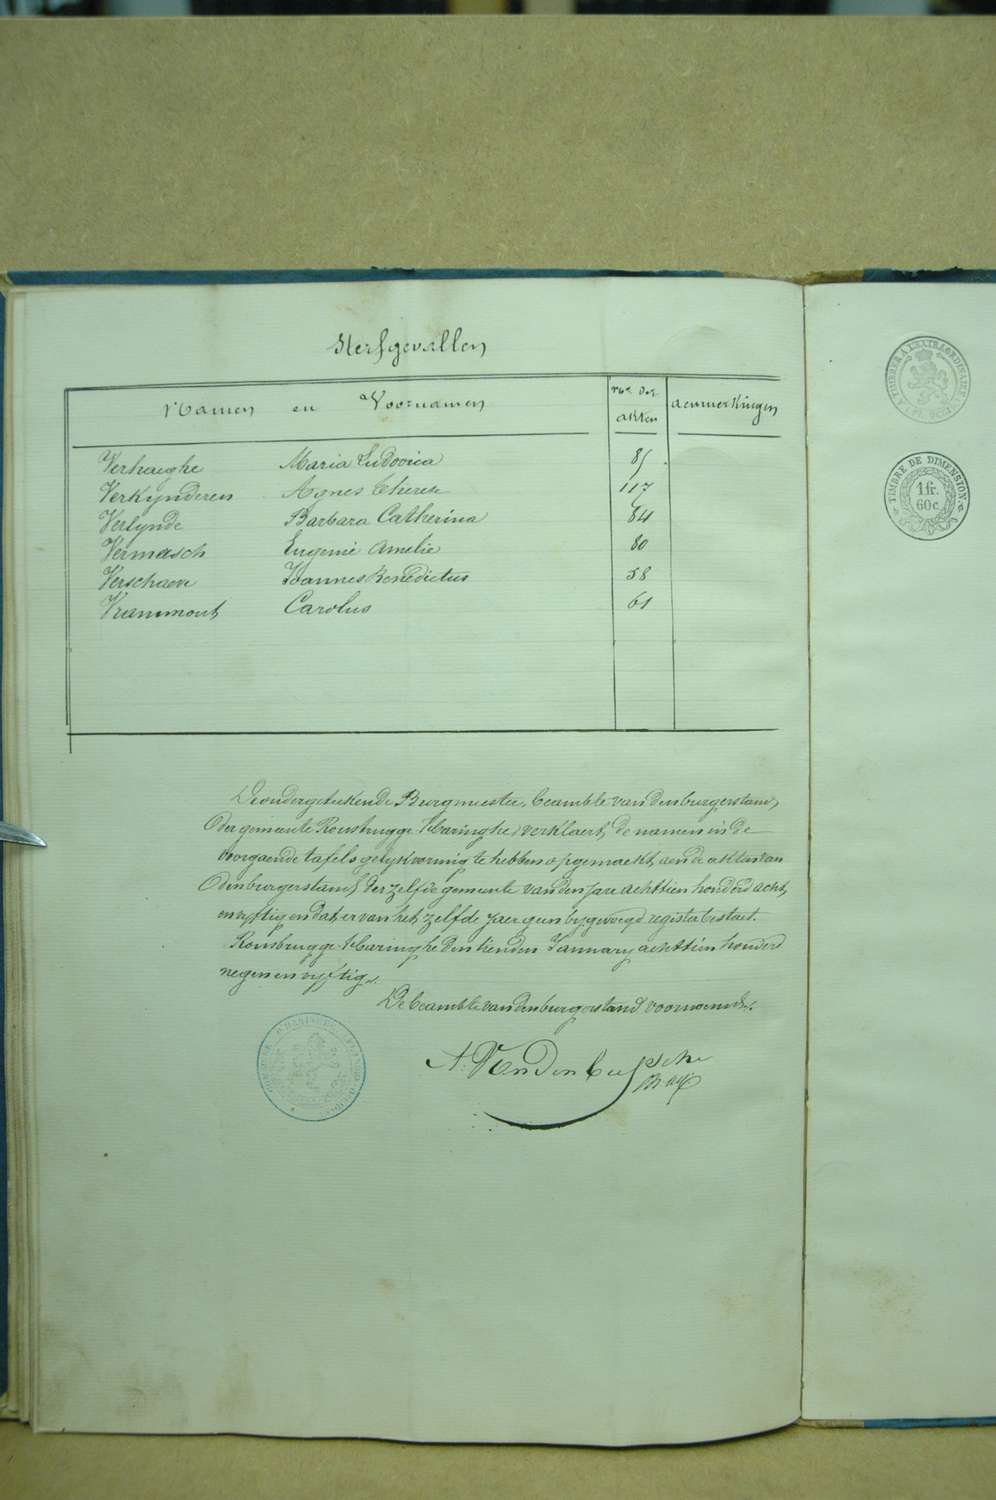 Sterfgevallen
Namen en Voornamen
Nos der akten
aenmerkingen
Verhaeghe Maria Ludovica 85
Verkynderen Agnes Therese 117
Verlynde Barbara Catherina 84
Vermasch Eugenie Amelie 80
Verschaeve Joannes Benedictus 58
Vrammout Carolus 61
De ondergeteekende Burgmeester, beambte van den burgerstand
der gemeente Rousbrugge Haringhe verklaert de namen in de
voorgaende tafels gelykvormig te hebben opgemaekt aen de akten van
den burgerstand der zelfde gemeente van den jare achttien honderd acht
en vyftig en dat er van het zelfde jaer geen bygevoegd register bestaet.
Rousbrugge Haringhe den tienden January achttien honderd
negen en vyftig.
De beambte van den burgerstand voornoemd.
A. Vandenbussche
TIMBRE DE DIMENSION.
1 fr.
60 c.